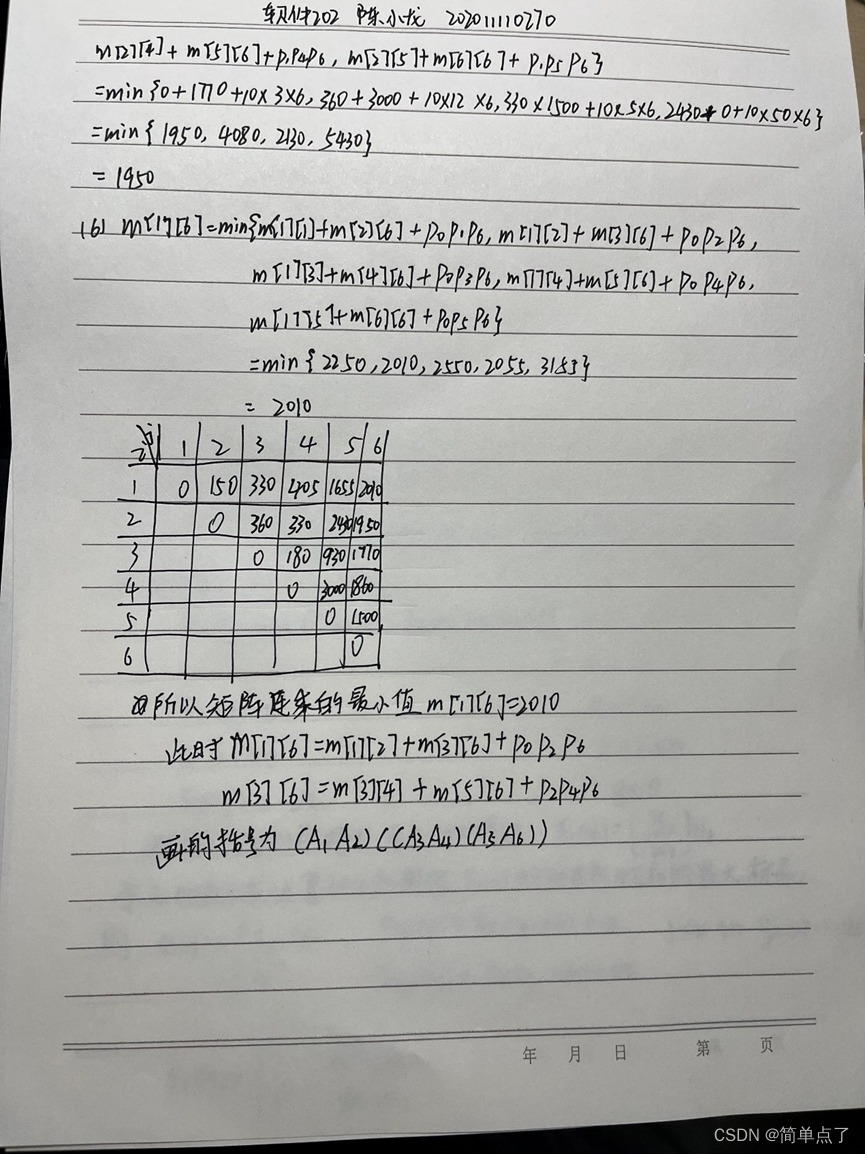 软件202 陈小龙 202011110270
m[2][4]+m[5][6]+p1p4p6, m[2][5]+m[6][6]+p1p5p6}
=min{0+1770+10×3×6, 360+3000+10×12×6, 330×1500+10×5×6, 2430+0+10×50×6}
=min{1950, 4080, 2130, 5430}
=1950
(6) m[1][6]=min{m[1][1]+m[2][6]+p0p1p6, m[1][2]+m[3][6]+p0p2p6,
m[1][3]+m[4][6]+p0p3p6, m[1][4]+m[5][6]+p0p4p6,
m[1][5]+m[6][6]+p0p5p6}
=min{2250, 2010, 2550, 2055, 3155}
= 2010
1 2 3 4 5 6
1 0 150 330 405 1655 2010
2 0 360 330 2430 1950
3 0 180 930 1770
4 0 3000 1860
5 0 1500
6 0
所以矩阵连乘的最小值m[1][6]=2010
此时m[1][6]=m[1][2]+m[3][6]+p0p2p6
m[3][6]=m[3][4]+m[5][6]+p2p4p6
的括号为 (A1A2)((A3A4)(A5A6))
年 月 日 第 页
CSDN @简单点了